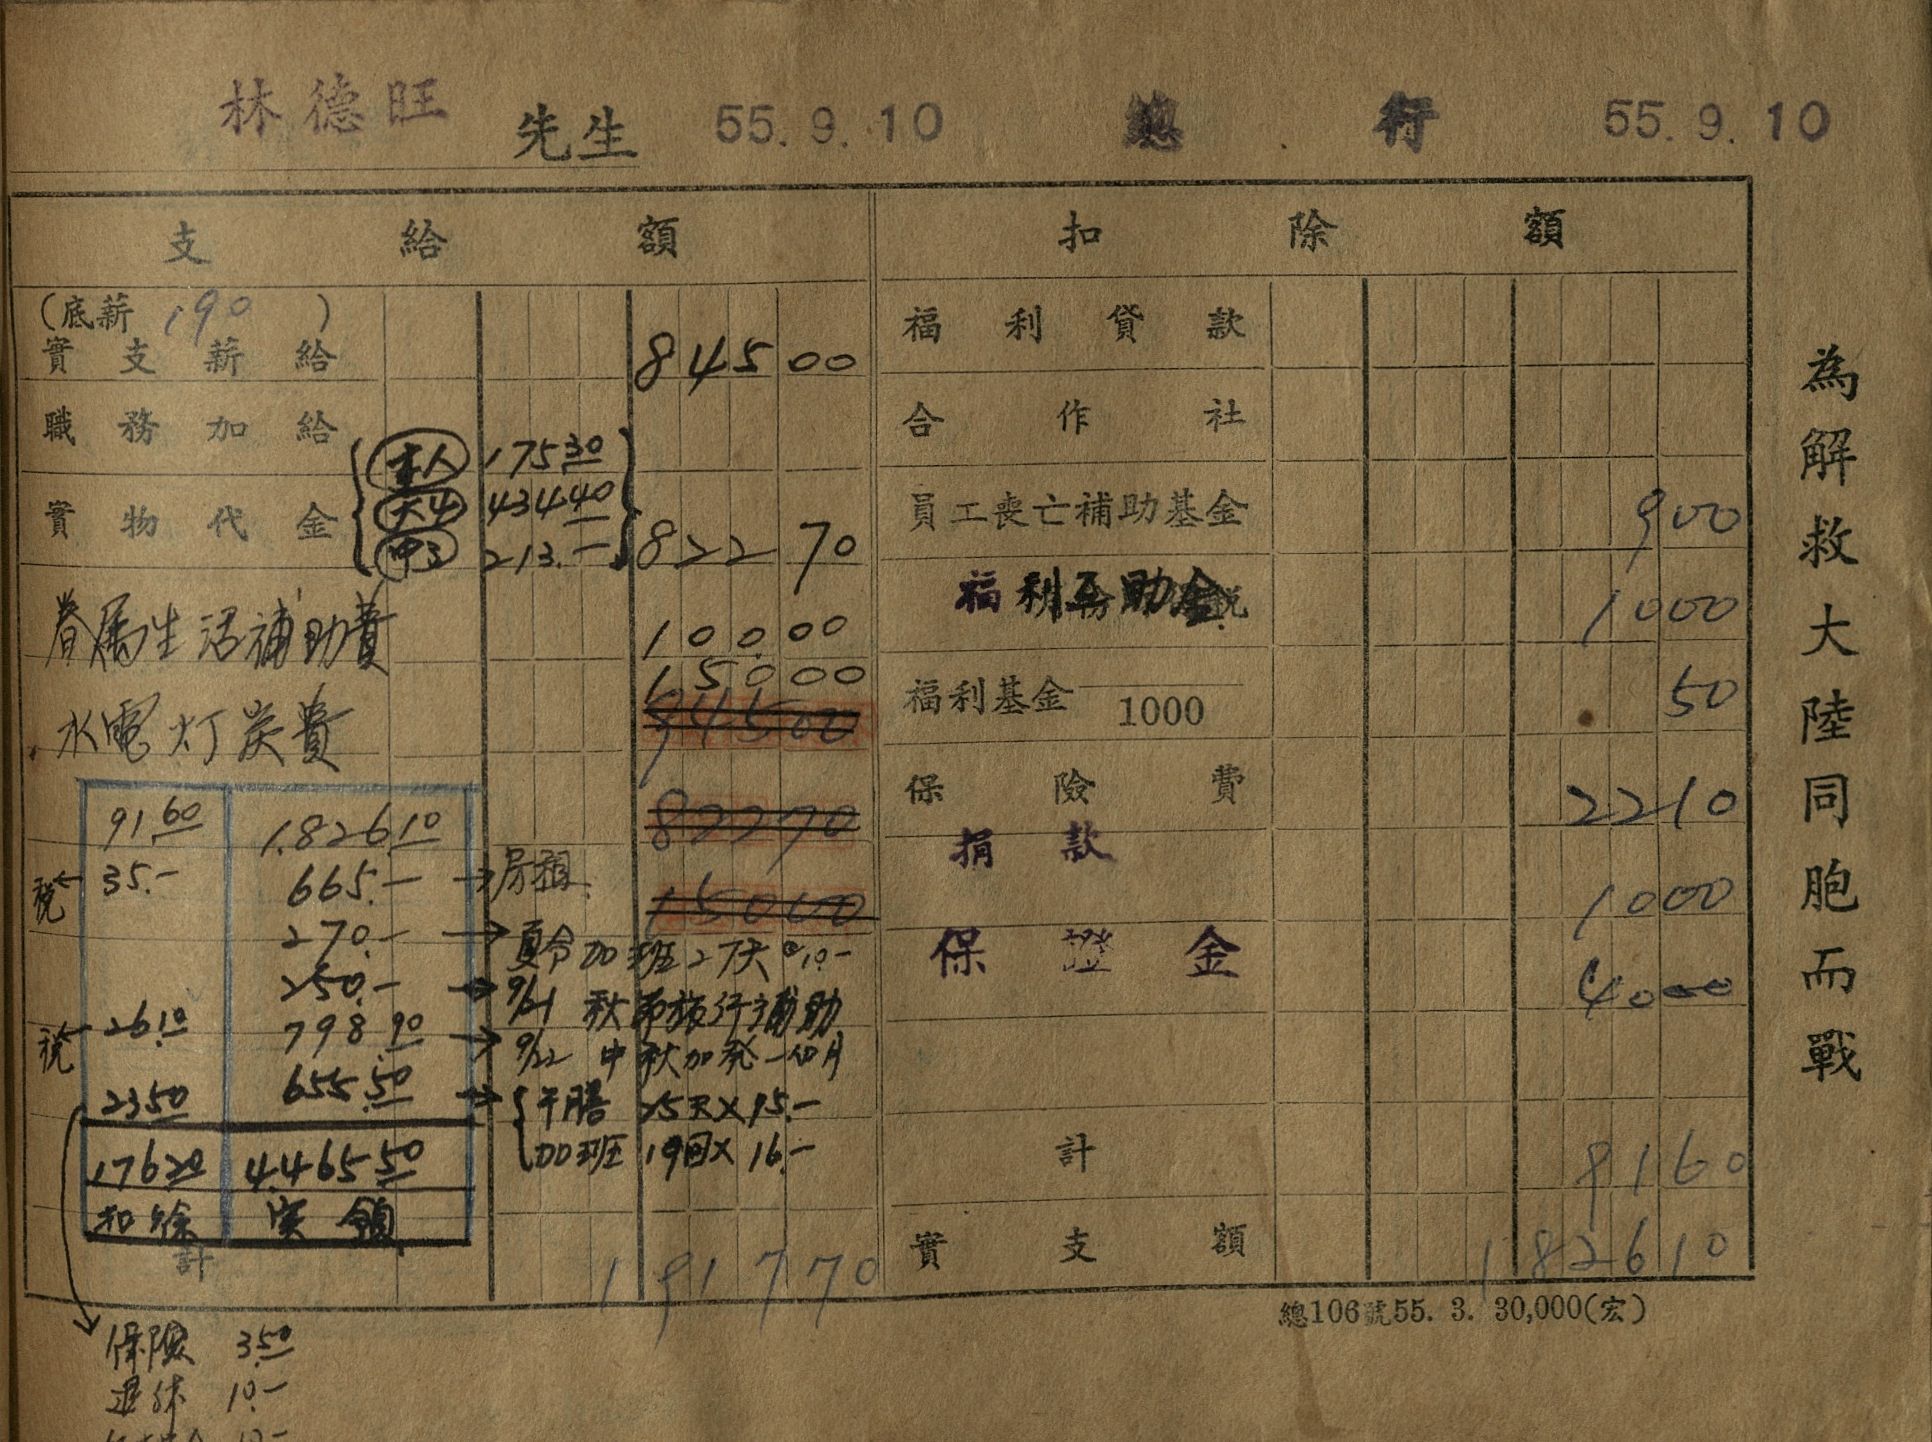 林德旺 先生 55.9.10 總行 55.9.10
支給額
(底薪 190 )
實支薪給 845 00
職務加給
實物代金
本人 175 30
大4 434 40
中2 213.—
822 70
眷属生活補助費 100.00
150 00
水電灯炭費
945 00
822 70
150 00
91 60 1,826 10
税 35.— 665.— 房租
270.— 夏令加班27天@10.—
250.— 9/21 秋節旅行補助
税 26 10 798.90 9/22 中秋加発一個月
23 50 655.50 午膳 25天×15.—
加班 19回×16.—
176 20 4,465 50
扣除 実領
計 1 917 70
保險 3.50
退休 10.—
扣除額
福利貸款
合作社
員工喪亡補助基金 9 00
福利互助金 10 00
福利基金 1000 50
保險費 22 10
捐款 10 00
保證金 40 00
計 91 60
實支額 1 826 10
總106號55. 3. 30,000(宏)
為解救大陸同胞而戰